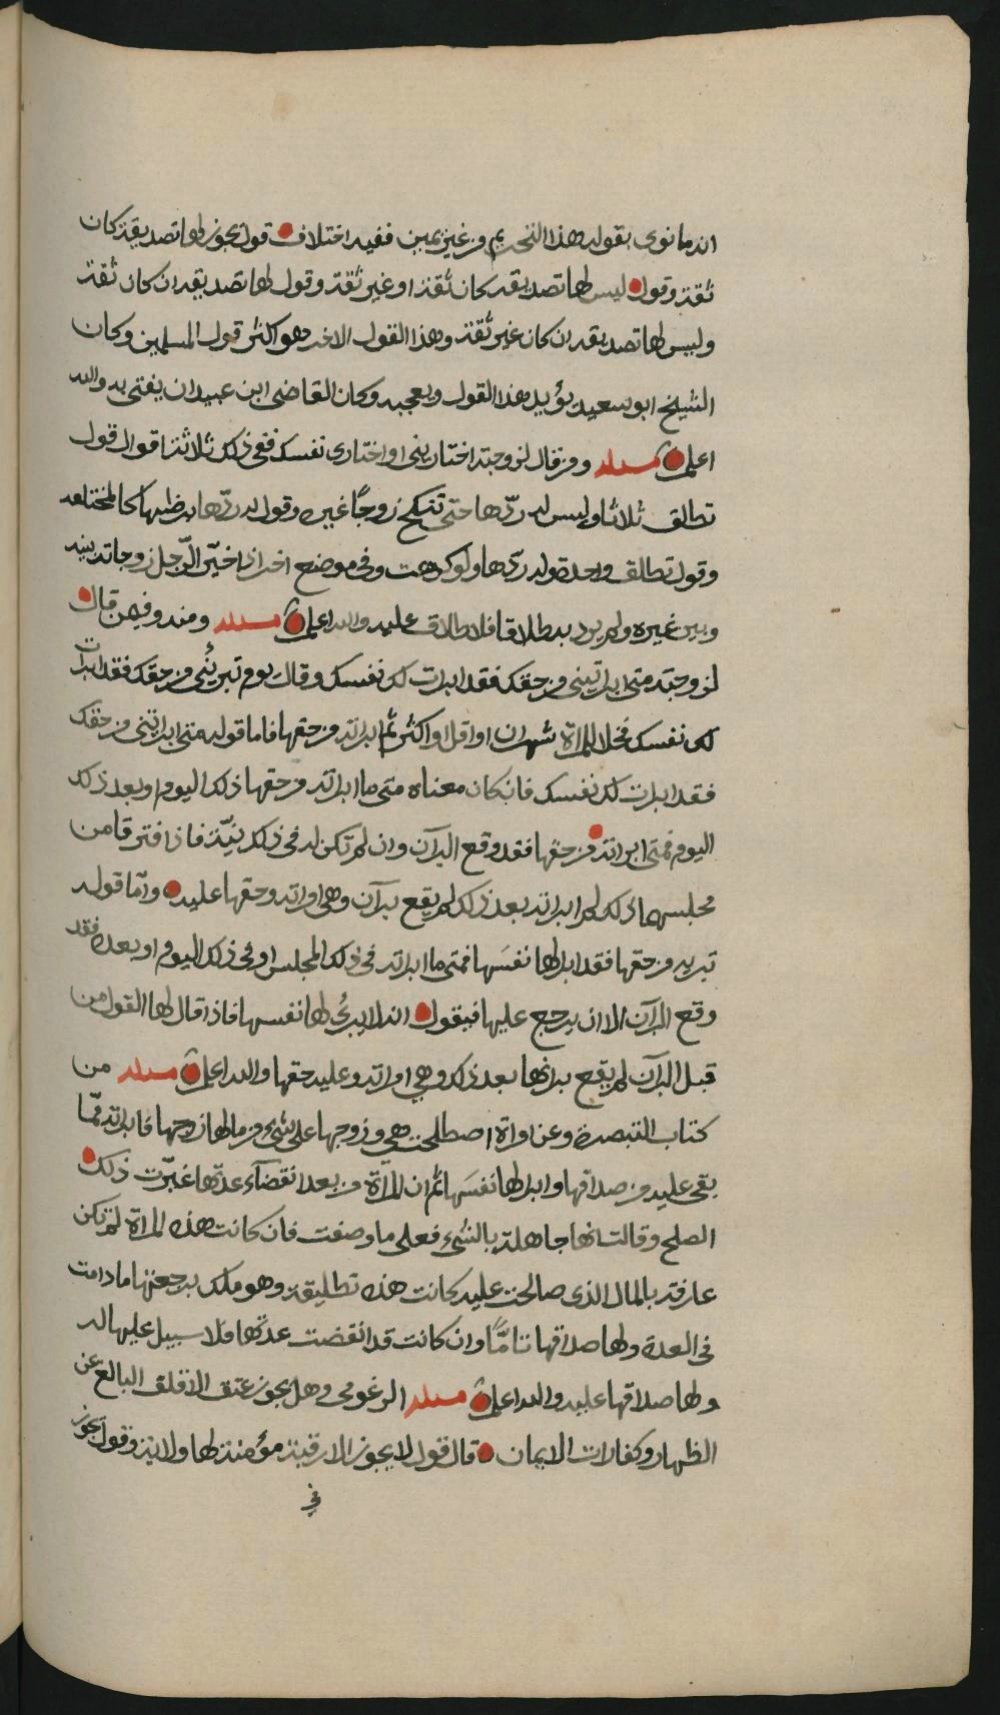 انه ما نوى بقوله هذا التحريم من غير يمين ففيه اختلاف قول يجوز لها تصديقه كان
ثقة وقول ليس لها تصديقه كان ثقة او غير ثقة وقول لها تصديقه ان كان ثقة
وليس لها تصديقه ان كان غير ثقة وهذا القول الاخر هو اكثر قول المسلمين وكان
الشيخ ابو سعيد يؤيد هذا القول ويعجبه وكان القاضي ابن عبيدان يفتي به والله
اعلم مسئلة ومن قال لزوجته اختاريني او اختاري نفسك ففي ذلك ثلاثة اقوال قول
تطلق ثلاثا وليس له ردّها حتى تنكح زوجًا غيره وقول له ردّها برضيها كالمختلعه
وقول تطلق واحدة وله ردّها ولو كرهت وفي موضع اخر اذا خيّر الرّجل زوجاته بينه
وبين غيره ولم يرد به طلاقا فلا طلاق عليه والله اعلم مسئلة ومنه وفيمن قال
لزوجته متى ابراتيني من حقك فقد ابرات لك نفسك وقال يوم تبرئني من حقك فقد ابرات
لك نفسك فخلا للمراة شهران او اقل او اكثر ثم ابراته من حقها فاما قوله متى ابراتيني من حقك
فقد ابرات لك نفسك فان كان معناه متى ما ابراته من حقها ذلك اليوم او بعد ذلك
اليوم فمتى ابراته من حقها فقد وقع البرآن وان لم تكن له في ذلك نيّة فاذا افترقا من
مجلسهما ذلك ثم ابراته بعد ذلك لم يقع برآن وهي امراته وحقها عليه وامّا قوله
تبريه من حقها فقد ابرا لها نفسَها فمتى ما ابراته في ذلك المجلس او في ذلك اليوم او بعده فقد
وقع البرآن الا ان يرجع عليها فيقول انه لا يبرئ لها نفسها فاذا قال لها القول من
قبل البرآن لم يقع برانها بعد ذلك وهي امراته وعليه حقها والله اعلم مسئلة من
كتاب التبصرة وعن امراة اصطلحت هي وزوجها على شيء من مالها زوجها فابراته ممّا
بقي عليه من صداقها وابرا لها نفسَها ثم ان المراة من بعد انقضآء عدتها غيّرت ذلك
الصلح وقالت انها جاهلة بالشيء فعلى ما وصفت فان كانت هذه المراة لم تكن
عارفة بالمال الذي صالحت عليه كانت هذه تطليقة وهو ملك برجعتها ما دامت
في العدة ولها صداقها تامًّا وان كانت قد انقضت عدتها فلا سبيل عليها له
ولها صداقها عليه والله اعلم مسئلة الرغومي وهل يجوز عتق الاقلف البالغ عن
الظهار وكفارات الايمان قال قول لا يجوز الا رقبة مؤمنة لها ولاية وقول يجوز
في